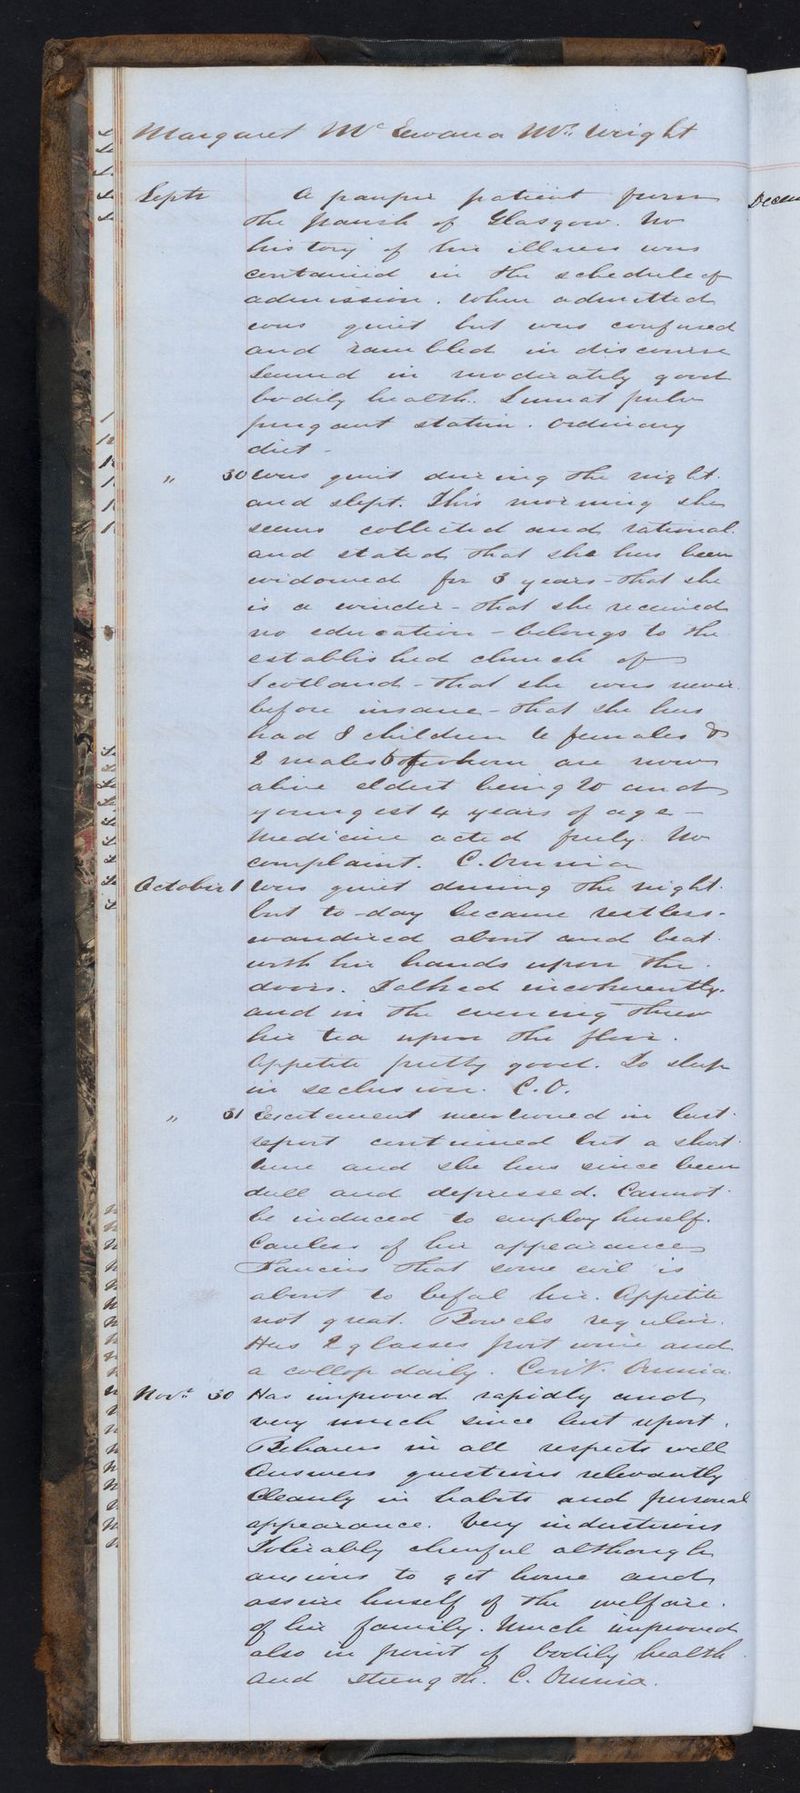 Margaret Mc Ewan or Mrs. Wright
Septr A pauper patient from
the parish of Glasgow. No
history of her illness was
contained in the schedule of
admission. When admitted
was quiet but was confused
and rambled in discourse
Seemed in moderately good
bodily health. Sumat pulv
purgant statim. Ordinary
diet -
" 30 Was quiet during the night.
and slept. This morning she
seems collected and rational.
and stated that she has been
widowed for 3 years - that she
is a winder - that she received
no education - belongs to the
established church of
Scotland - that she was never
before insane - that she has
had 8 children 6 females &
2 males 6 of whom are now
alive eldest being 20 and
youngest 4 years of age -
Medicine acted freely. No
complaint. C. Omnia
October 1 Was quiet during the night.
but to-day became restless.
wandered about and beat
with her hands upon the
doors. Talked incoherently.
and in the evening threw
her tea upon the floor.
Appetite pretty good. To sleep
in seclusion. C.O.
" 31 Excitement mentioned in last
report continued but a short
time and she has since been
dull and depressed. Cannot
be induced to employ herself.
Careless of her appearance
Fancies that some evil is
about to befal her. Appetite
not great. Bowels regular.
Has 2 glasses port wine and
a collop daily. Cont. Omnia.
Novr. 30 Has improved rapidly and
very much since last report.
Behaves in all respects well
Answers questions relevantly
Cleanly in habits and personal
appearance. Very industrious
Tolerably cheerful although
anxious to get home and
assure herself of the welfare.
of her family. Much improved
also in point of bodily health
and strength. C. Omnia.